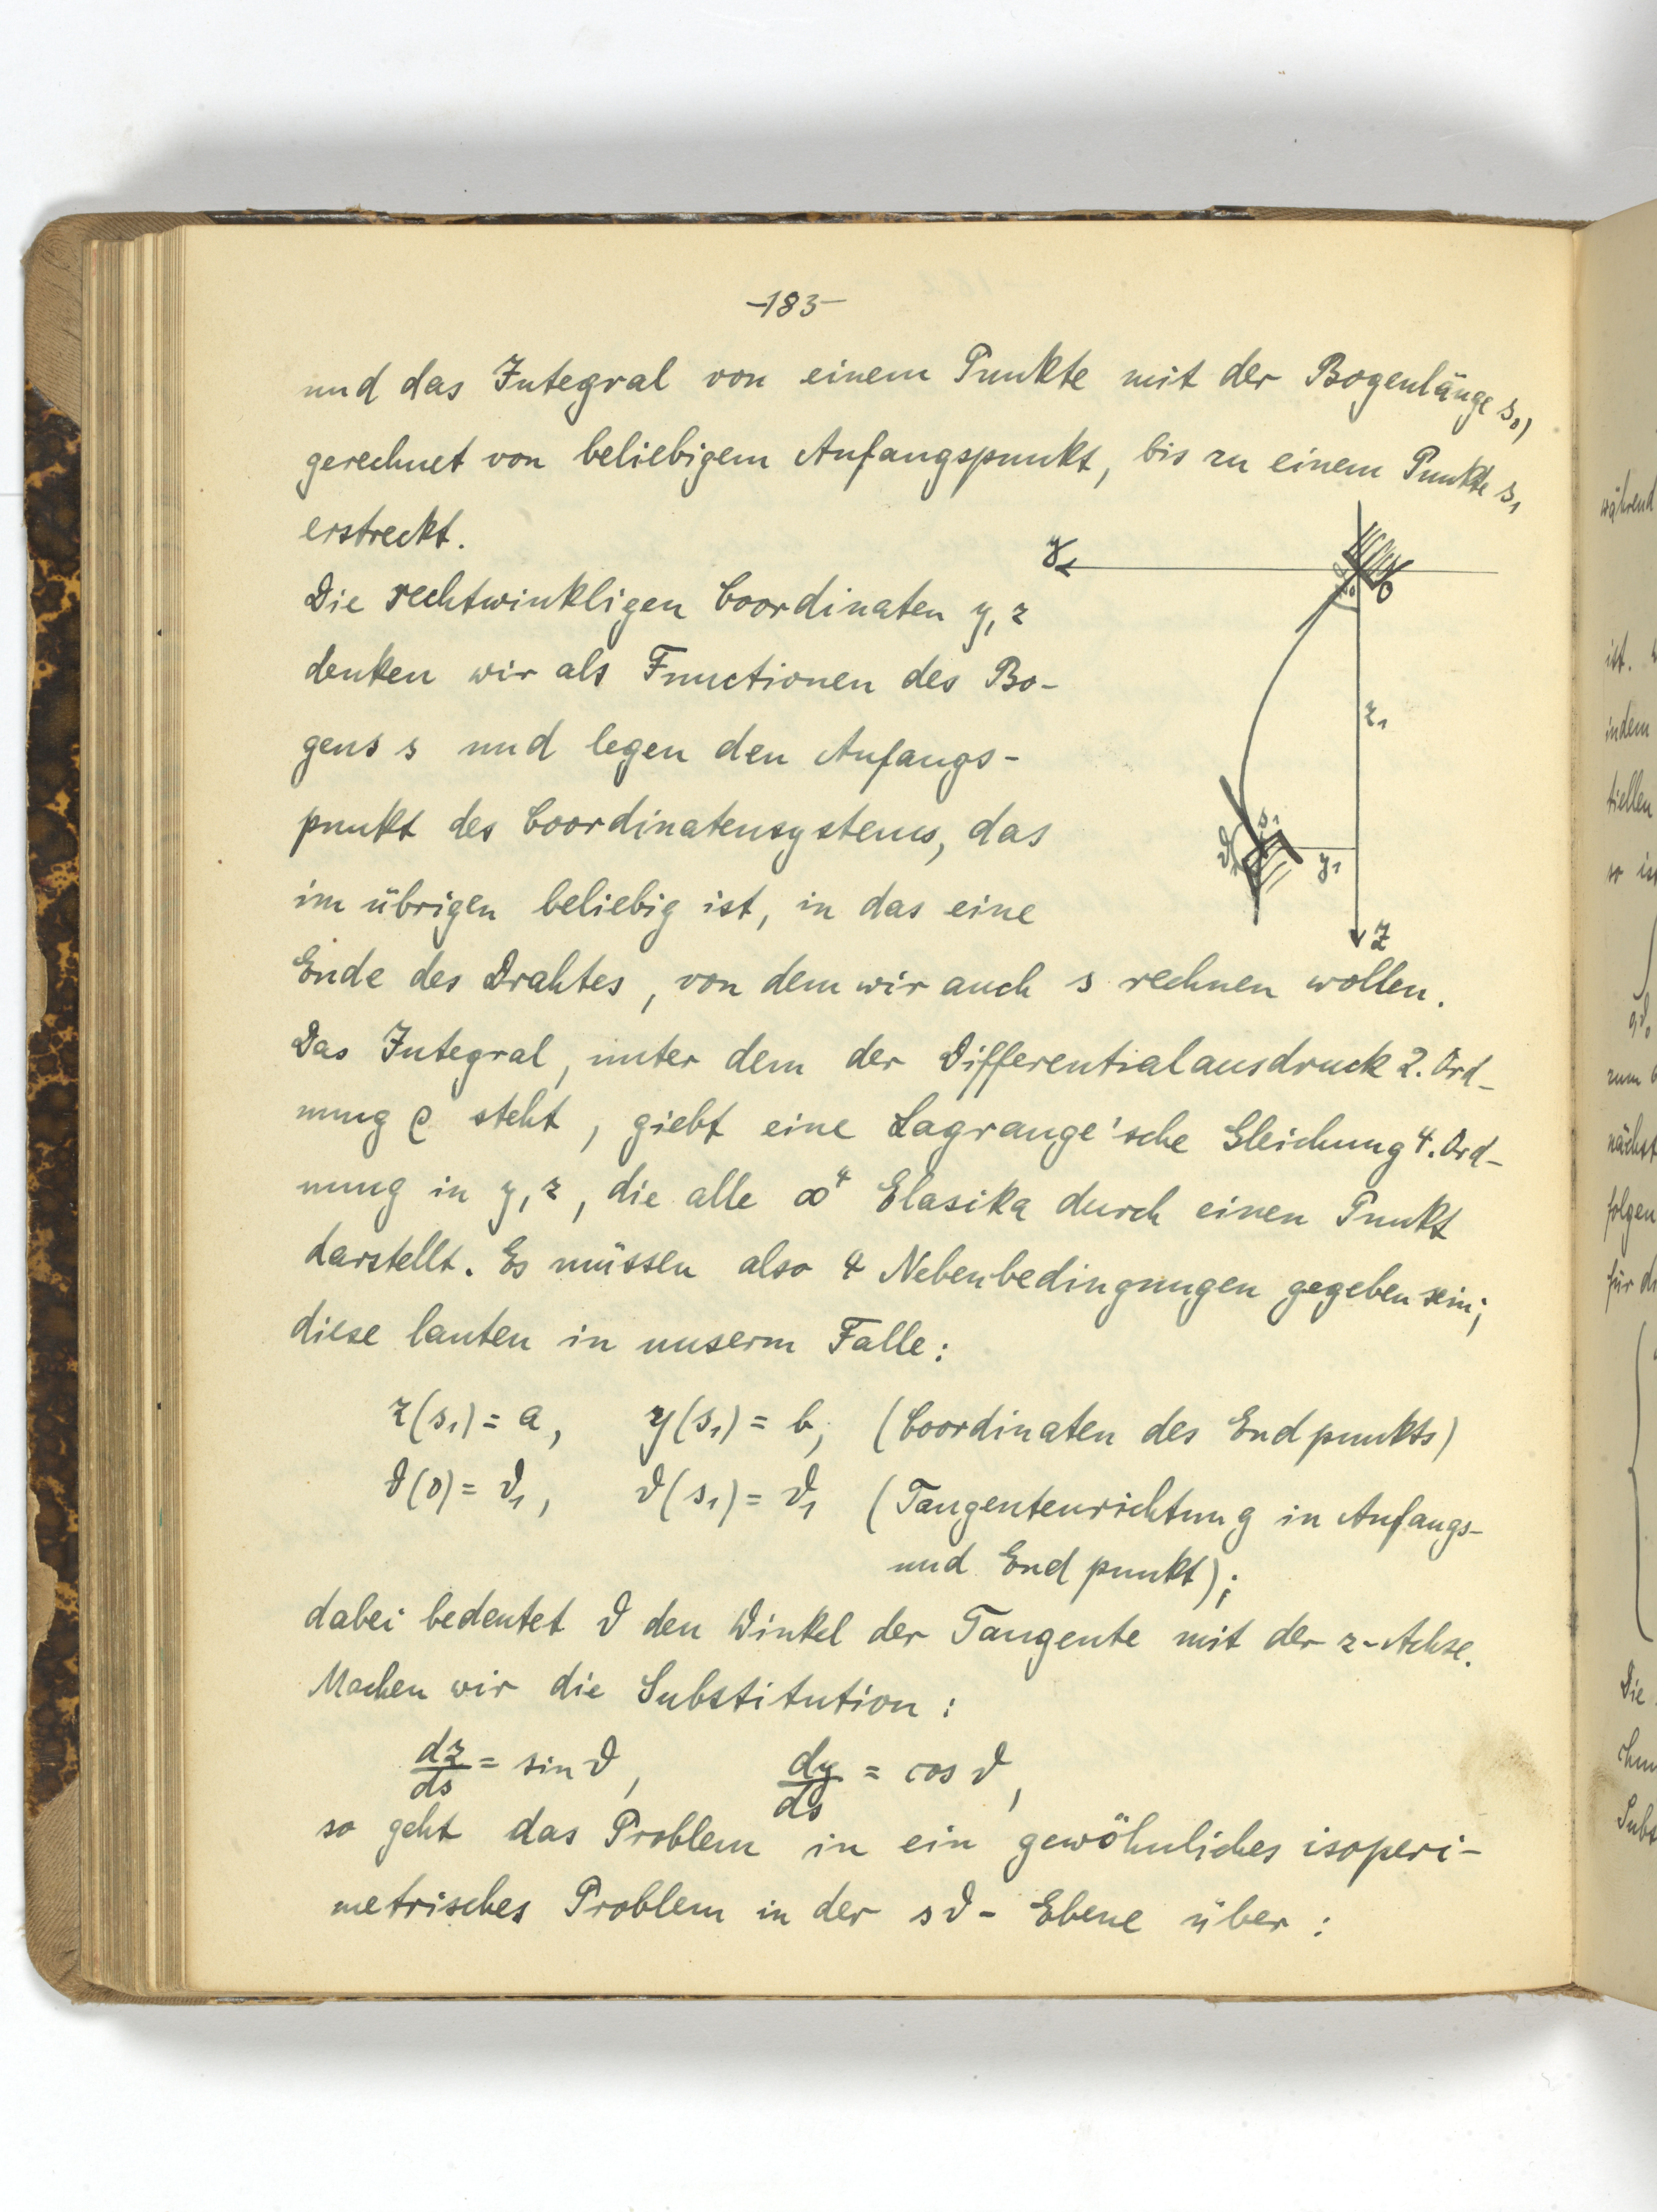 -183-
und das Integral von einem Punkte mit der Bogenlänge s₀,
gerechnet von beliebigem Anfangspunkt, bis zu einem Punkte s₁
erstreckt.
Die rechtwinkligen Coordinaten y, z
denken wir als Functionen des Bo-
gens s und legen den Anfangs-
punkt des Coordinatensystems, das
im übrigen beliebig ist, in das eine
Ende des Drahtes, von dem wir auch s rechnen wollen.
y
0
z₁
s₁
y₁
z
Das Integral, unter dem der Differentialausdruck 2. Ord-
nung ρ steht, giebt eine Lagrange'sche Gleichung 4. Ord-
nung in y, z, die alle ∞⁴ Elasika durch einen Punkt
darstellt. Es müssen also 4 Nebenbedingungen gegeben sein;
diese lauten in unserm Falle:
z(s₁) = a, y(s₁) = b, (Coordinaten des Endpunkts)
ϑ(0) = ϑ₁, ϑ(s₁) = ϑ₁ (Tangentenrichtung in Anfangs-
und Endpunkt);
dabei bedeutet ϑ den Winkel der Tangente mit der z-Achse.
Machen wir die Substitution:
dz/ds = sin ϑ, dy/ds = cos ϑ,
so geht das Problem in ein gewöhnliches isoperi-
metrisches Problem in der sϑ-Ebene über:
während
ist.
indem
tiellen
so
zum
nächst
folgen
für
Die